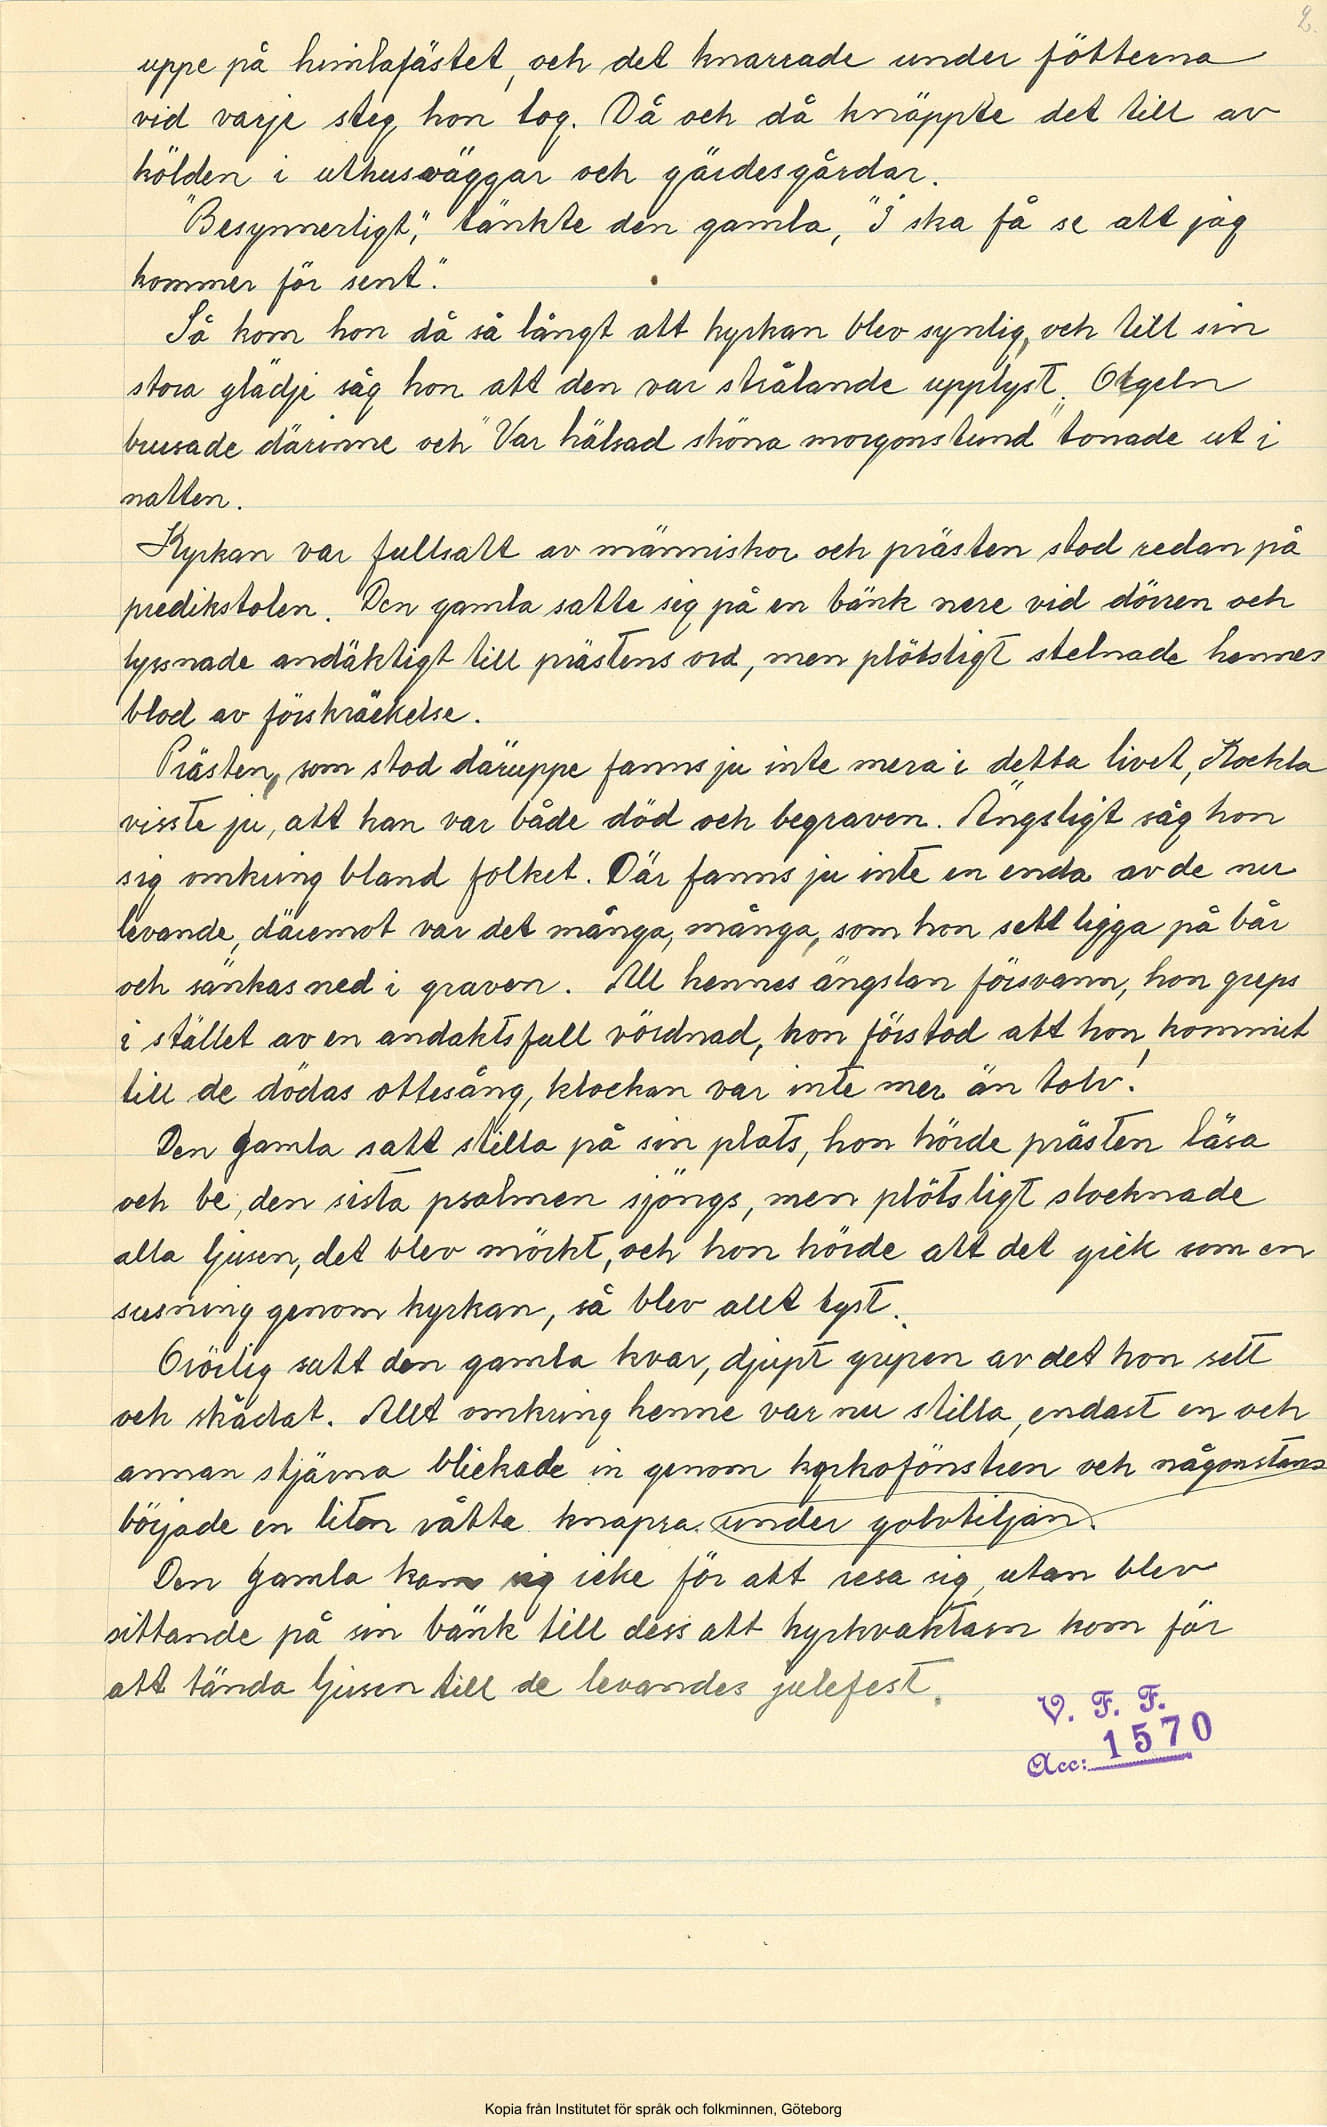 2.
uppe på himlafästet, och det knarrade under fötterna
vid varje steg hon tog. Då och då knäppte det till av
kölden i uthusväggar och gärdesgårdar.
"Besynnerligt", tänkte den gamla, "I ska få se att jag
kommer för sent".
Så kom hon då så långt att kyrkan blev synlig, och till sin
stora glädje såg hon att den var strålande upplyst. Orgeln
brusade därinne och "Var hälsad sköna morgonstund" tonade ut i
natten.
Kyrkan var fullsatt av människor och prästen stod redan på
predikstolen. Den gamla satte sig på en bänk nere vid dörren och
lyssnade andäktigt till prästens ord, men plötsligt stelnade hennes
blod av förskräckelse.
Prästen, som stod däruppe fanns ju inte mera i detta livet,
visste ju, att han var både död och begraven. Ängsligt såg hon
sig omkring bland folket. Där fanns ju inte en enda av de nu
levande, däremot var det många, många, som hon sett ligga på bår
och sänkas ned i graven. All hennes ängslan försvann, hon greps
i stället av en andaktsfull vördnad, hon förstod att hon kommit
till de dödas ottesång, klockan var inte mer än tolv!
Den gamla satt stilla på sin plats, hon hörde prästen läsa
och be, den sista psalmen sjöngs, men plötsligt slocknade
alla ljusen, det blev mörkt, och hon hörde att det gick som en
susning genom kyrkan, så blev allt tyst.
Orörlig satt den gamla kvar, djupt gripen av det hon sett
och skådat. Allt omkring henne var nu stilla, endast en och
annan stjärna blickade in genom kyrkofönstren och någonstans
började en liten råtta knapra under golvtiljan.
Den gamla kom sig icke för att resa sig, utan blev
sittande på sin bänk till dess att kyrkvaktarn kom för
att tända ljusen till de levandes julefest.
V. F. F.
Acc: 1570
Kopia från Institutet för språk och folkminnen, Göteborg